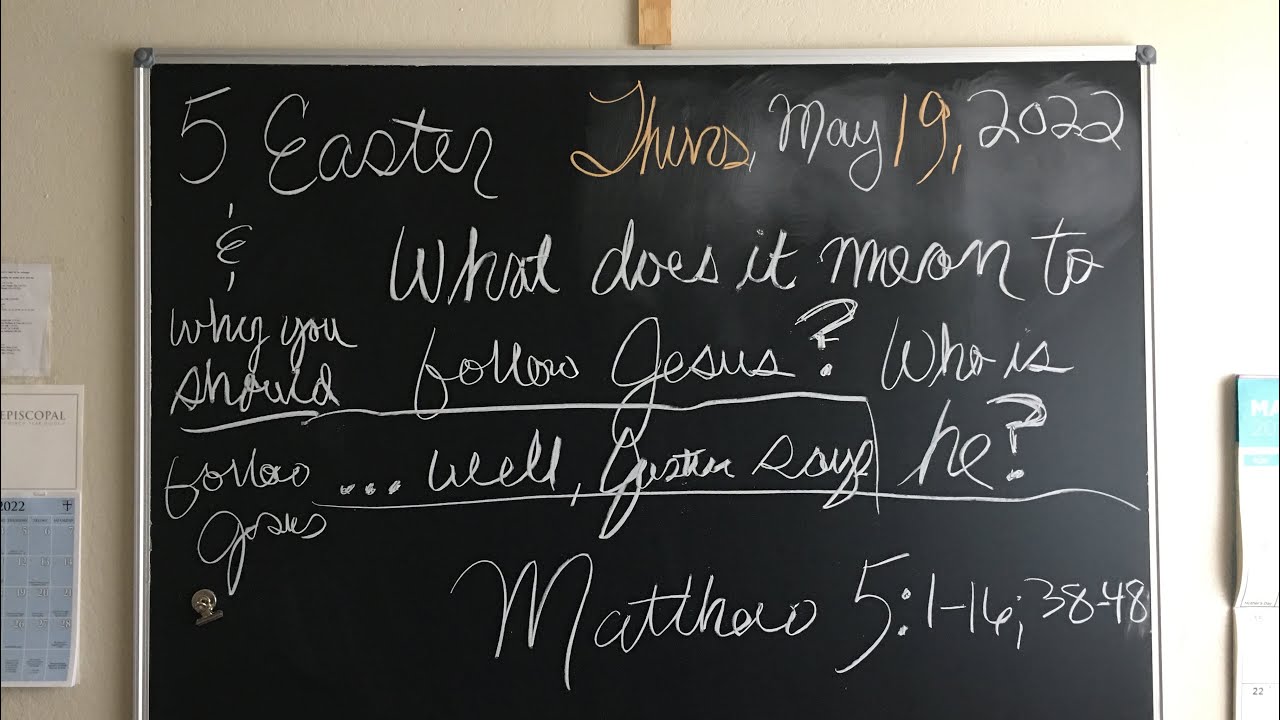 5 Easter Thurs, May 19, 2022
&
why you
should
follow
Jesus
What does it mean to
follow Jesus? Who is
... well, Justin says he?
Matthew 5:1-16; 38-48
EPISCOPAL
2022
MA
22